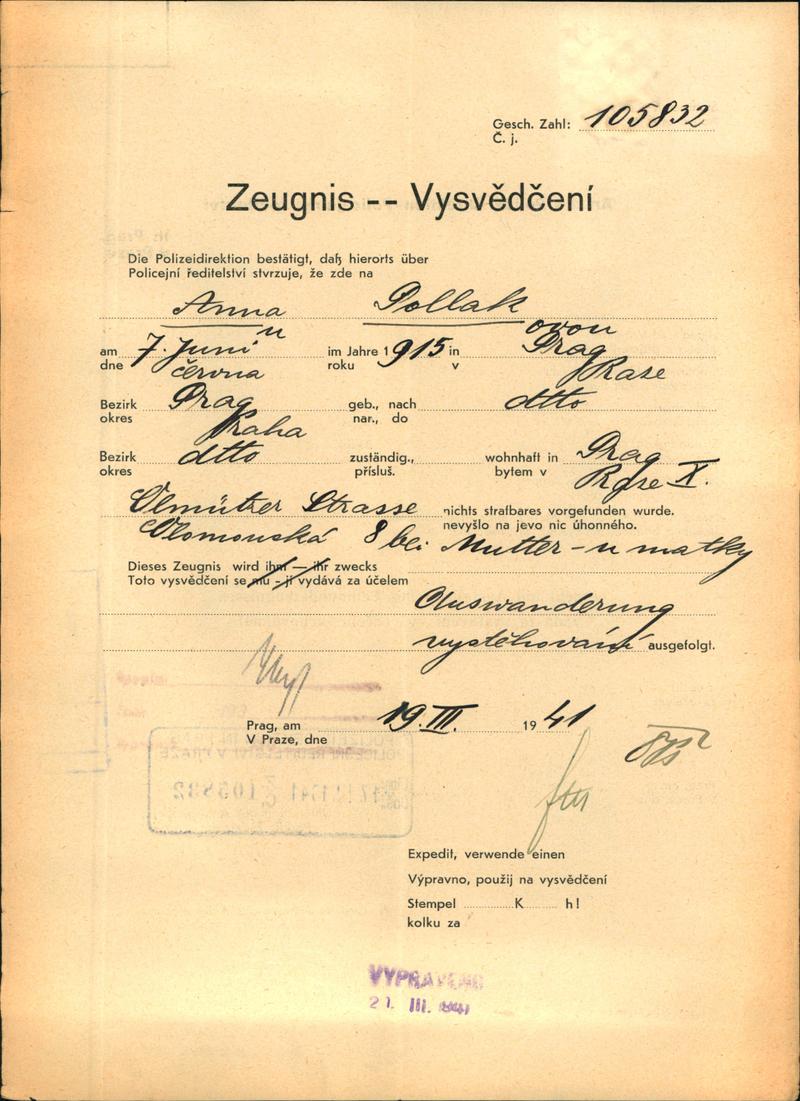 Gesch. Zahl: 105832
Č. j.
Zeugnis -- Vysvědčení
Die Polizeidirektion bestätigt, daß hierorts über
Policejní ředitelství stvrzuje, že zde na
Anna Pollak
u ovou
am 7. Juni im Jahre 1915 in Prag
dne června roku v Praze
Bezirk Prag geb., nach dtto
okres Praha nar., do
Bezirk dtto zuständig., wohnhaft in Prag
okres přísluš. bytem v X.
Olmützer Strasse nichts strafbares vorgefunden wurde.
Olomouská 8 bei Mutter - u matky nevyšlo na jevo nic úhonného.
Dieses Zeugnis wird ihm — ihr zwecks
Toto vysvědčení se mu - jí vydává za účelem
Auswanderung
vystěhování ausgefolgt.
Prag, am 19. III. 1941
V Praze, dne
105832
Expedit, verwende einen
Výpravno, použij na vysvědčení
Stempel K h!
kolku za
VYPRAVENO
21. III. 1941